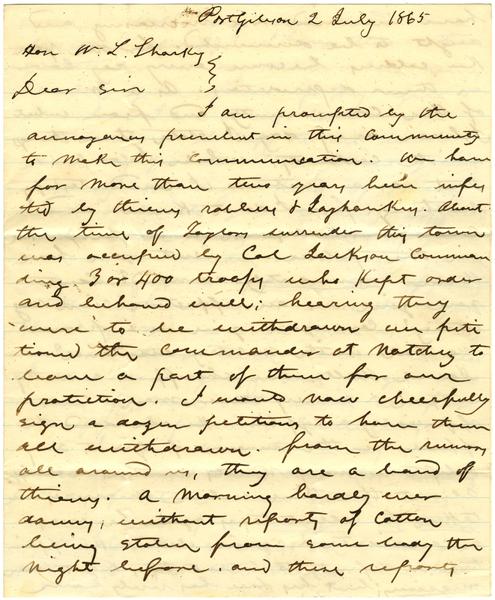 Port Gibson 2 July 1865
Hon W. L. Sharkey
Dear Sir
I am prompted by the
annoyances prevalent in this Community
to make this Communication. We have
for more than two years been infes
ted by thieves robbers & Jayhawkers. About
the time of Taylors surrender this town
was occupied by Col Jackson Comman
ding 3 or 400 troops who kept order
and behaved well; hearing they
were to be withdrawn we peti
tioned the Commander at Natchez to
leave a part of them for our
protection. I would now cheerfully
sign a dozen petitions to have them
all withdrawn. from the rumors
all around us, they are a band of
thieves. A morning hardly ever
dawns, without reports of Cotton
being stolen from some body the
night before. and these reports